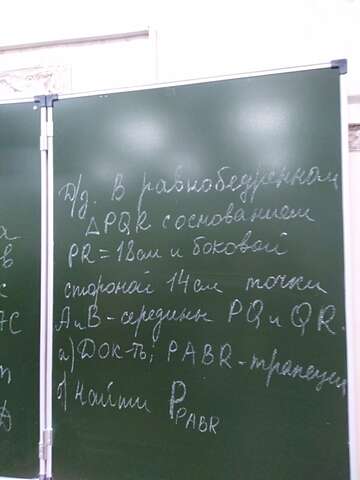 Д/з. В равнобедренном
△PQR с основанием
PR = 18 см и боковой
стороной 14 см точки
A и B - середины PQ и QR.
а) Док-ть: PABR - трапеция
б) Найти P_PABR